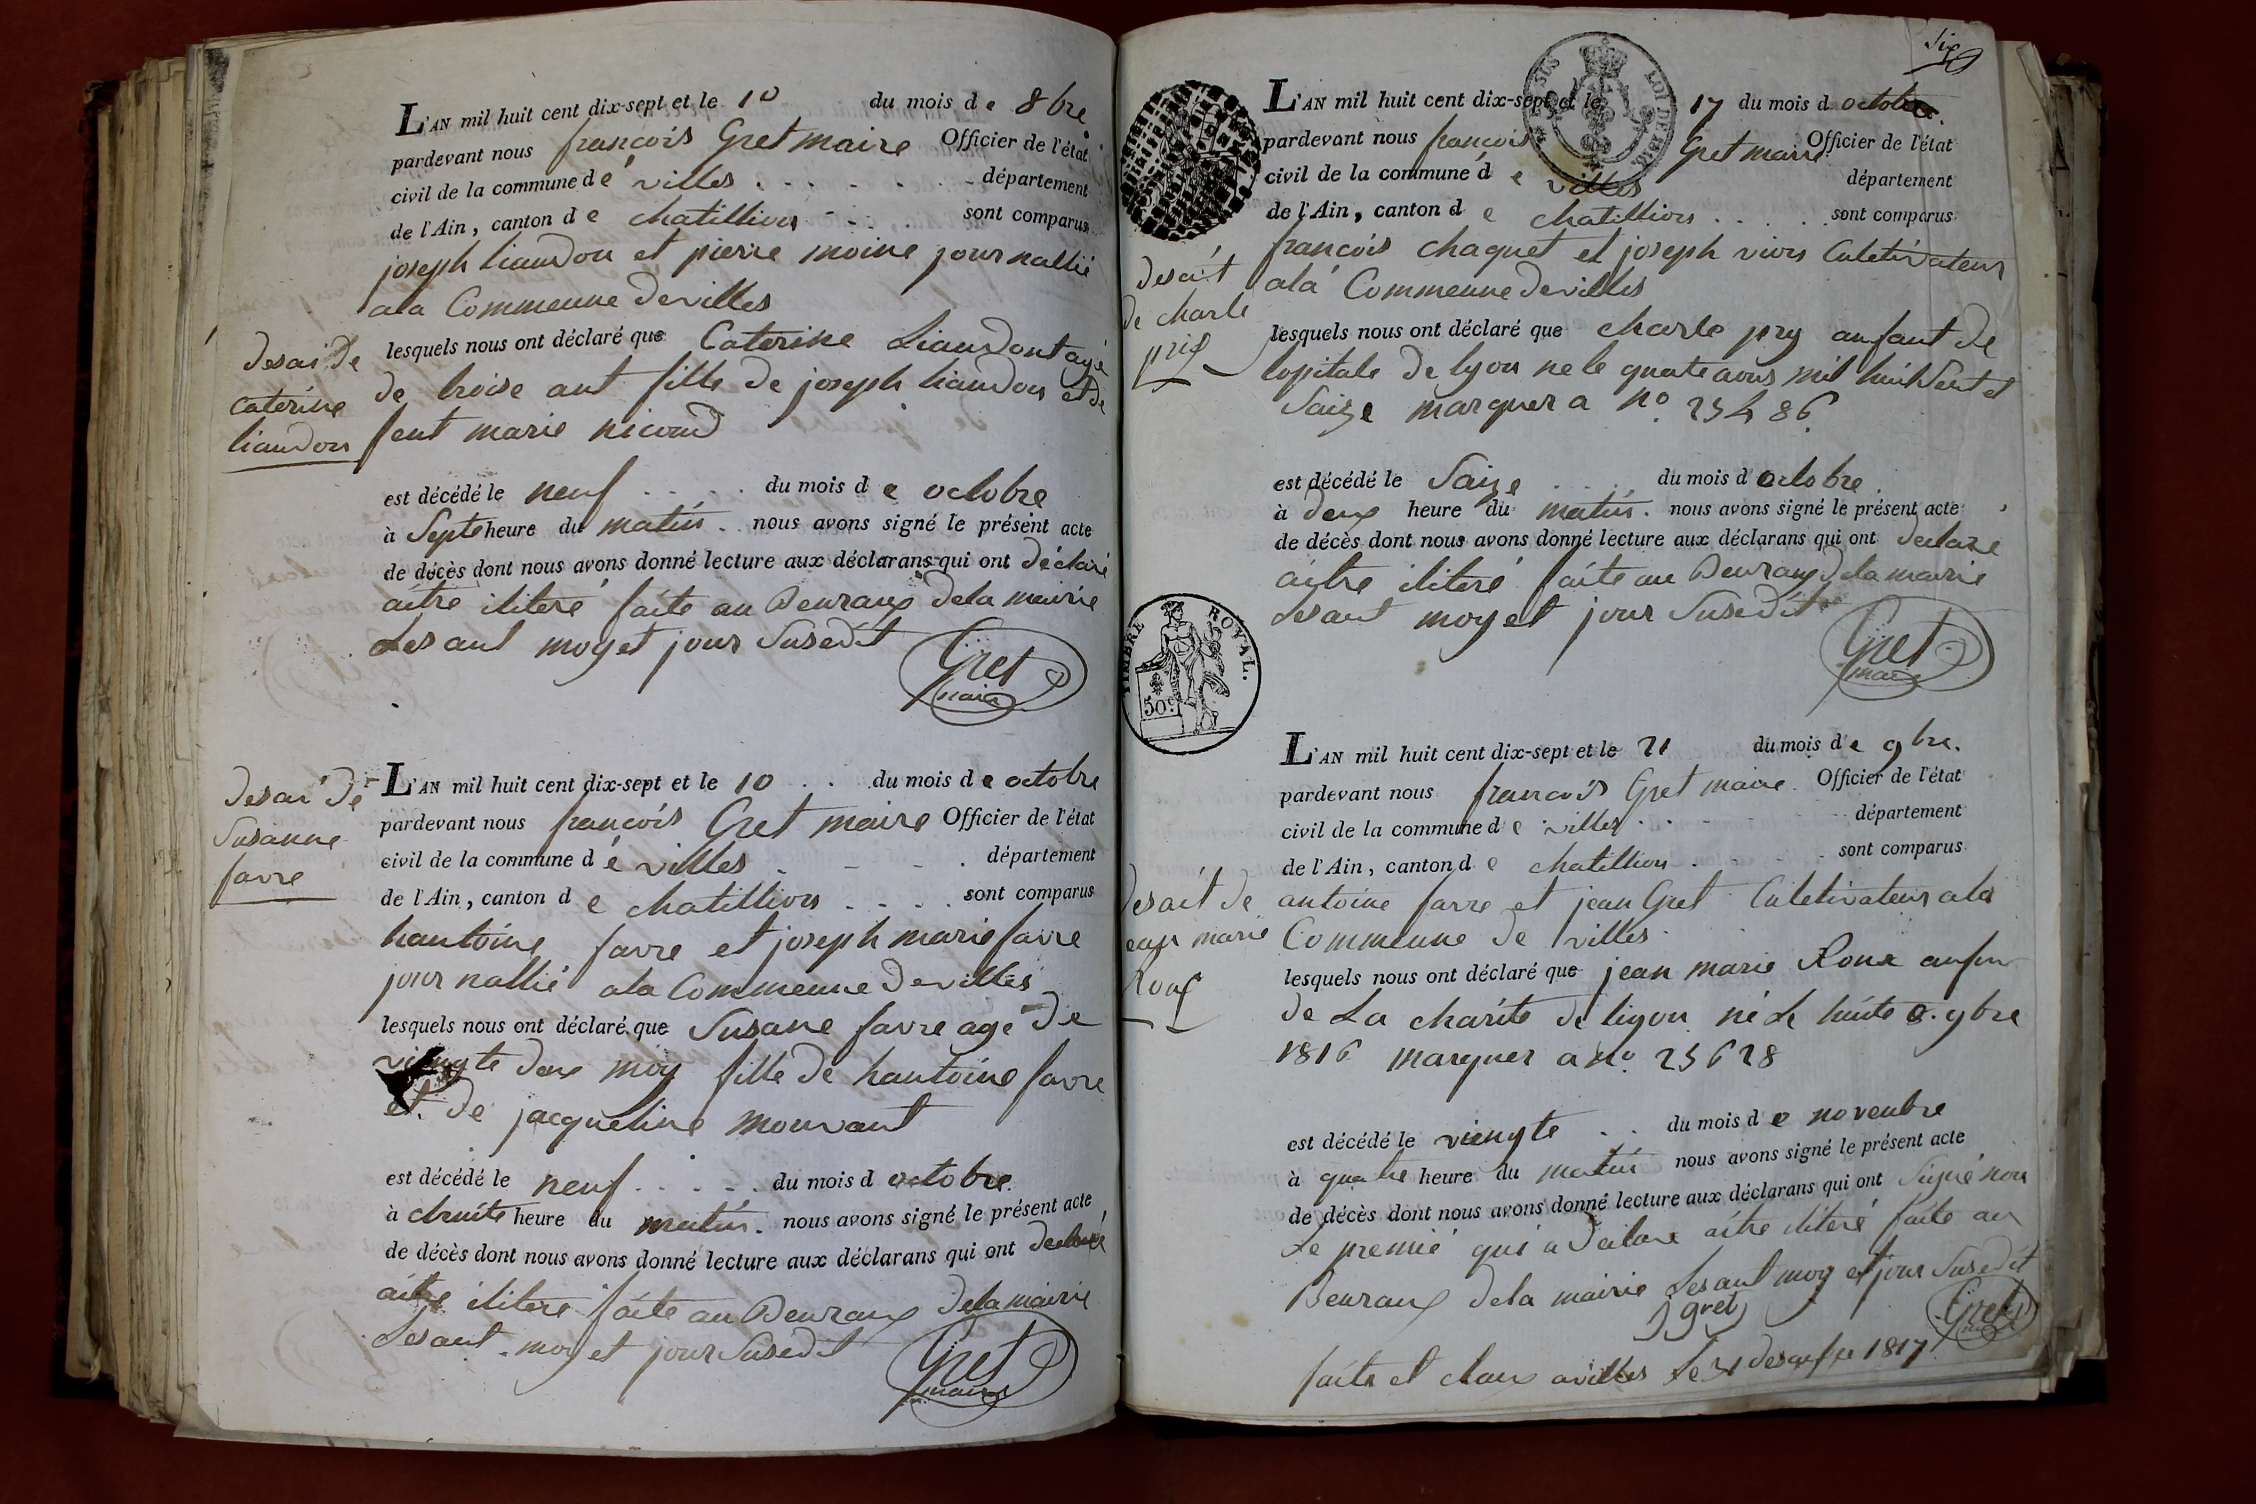 L'AN mil huit cent dix-sept et le 10 du mois de 8bre
pardevant nous françois Gret maire Officier de l'état
civil de la commune dé villes . . . . . département
de l'Ain, canton de chatillion . . . sont comparus
joseph liaudon et pierre moine journallié
ala Commeune de villes
desai de
caterine
liaudon
lesquels nous ont déclaré que Caterine Liaudont agé
de troise ant fille de joseph liaudon et de
feut marie nicoud
est décédé le neuf . . . . du mois de octobre
à Septe heure du matin . nous avons signé le présent acte
de décès dont nous avons donné lecture aux déclarans qui ont déclaré
aitre ilitere faite au Beuraux dela mairie
Les ant moy et jour Susedit
Gret
maire
desai de
Susanne
favre
L'AN mil huit cent dix-sept et le 10 . . du mois de octobre
pardevant nous françois Gret maire Officier de l'état
civil de la commune dé villes . - - . département
de l'Ain, canton de chatillion . . . . sont comparus
hantoine favre et joseph marie favre
journallié ala Commeune de villes
lesquels nous ont déclaré que Susane favre agé de
viengte deux moy fille de hantoine favre
et de jacqueline mouvant
est décédé le neuf . . . . du mois d octobre.
à heure du matin . nous avons signé le présent acte
de décès dont nous avons donné lecture aux déclarans qui ont declaré
aitre ilitere faite au Beuraux dela mairie
Lesant moy et jour Susedit
Gret
maire
Six
L'AN mil huit cent dix-sept et le 17 du mois d octobre.
pardevant nous françois Gret maire Officier de l'état
civil de la commune de villes département
de l'Ain, canton de chatillion . . . . sont comparus
françois chaquet et joseph vion Culetivateur
ala Commeune de villes
desait
de charle
prix
lesquels nous ont déclaré que charle pry anfant de
lopitale de lyon ne le quate aous mil huit Sent et
Saize marquer a no. 25486.
est décédé le Saize . . . du mois d octobre
à deux heure du matin . nous avons signé le présent acte
de décès dont nous avons donné lecture aux déclarans qui ont declaré
aitre iliteré faite au Beuraux dela mairie
Lesant moy et jour Susedit
Gret
maire
TIMBRE ROYAL.
50c
L'AN mil huit cent dix-sept et le 21 du mois de 9bre.
pardevant nous françois Gret maire Officier de l'état
civil de la commune de villes . . département
de l'Ain, canton de chatillion . . . . sont comparus
antoine favre et jean Gret Culetivateur ala
Commeune de villes
desait de
jean marie
Roux
lesquels nous ont déclaré que jean marie Roux anfan
de La charité de ligon né le huite 9bre
1816 marquer a no. 25628
est décédé le viengte . . du mois de novenbre
à quatre heure du matin nous avons signé le présent acte
de décès dont nous avons donné lecture aux déclarans qui ont Signé non
Le premié qui a déclare aitre iliteré faite au
Beuraux dela mairie Lesant moy et jour Susedit
J gret
Gret
maire
faite et claux a villes Le 31 1817